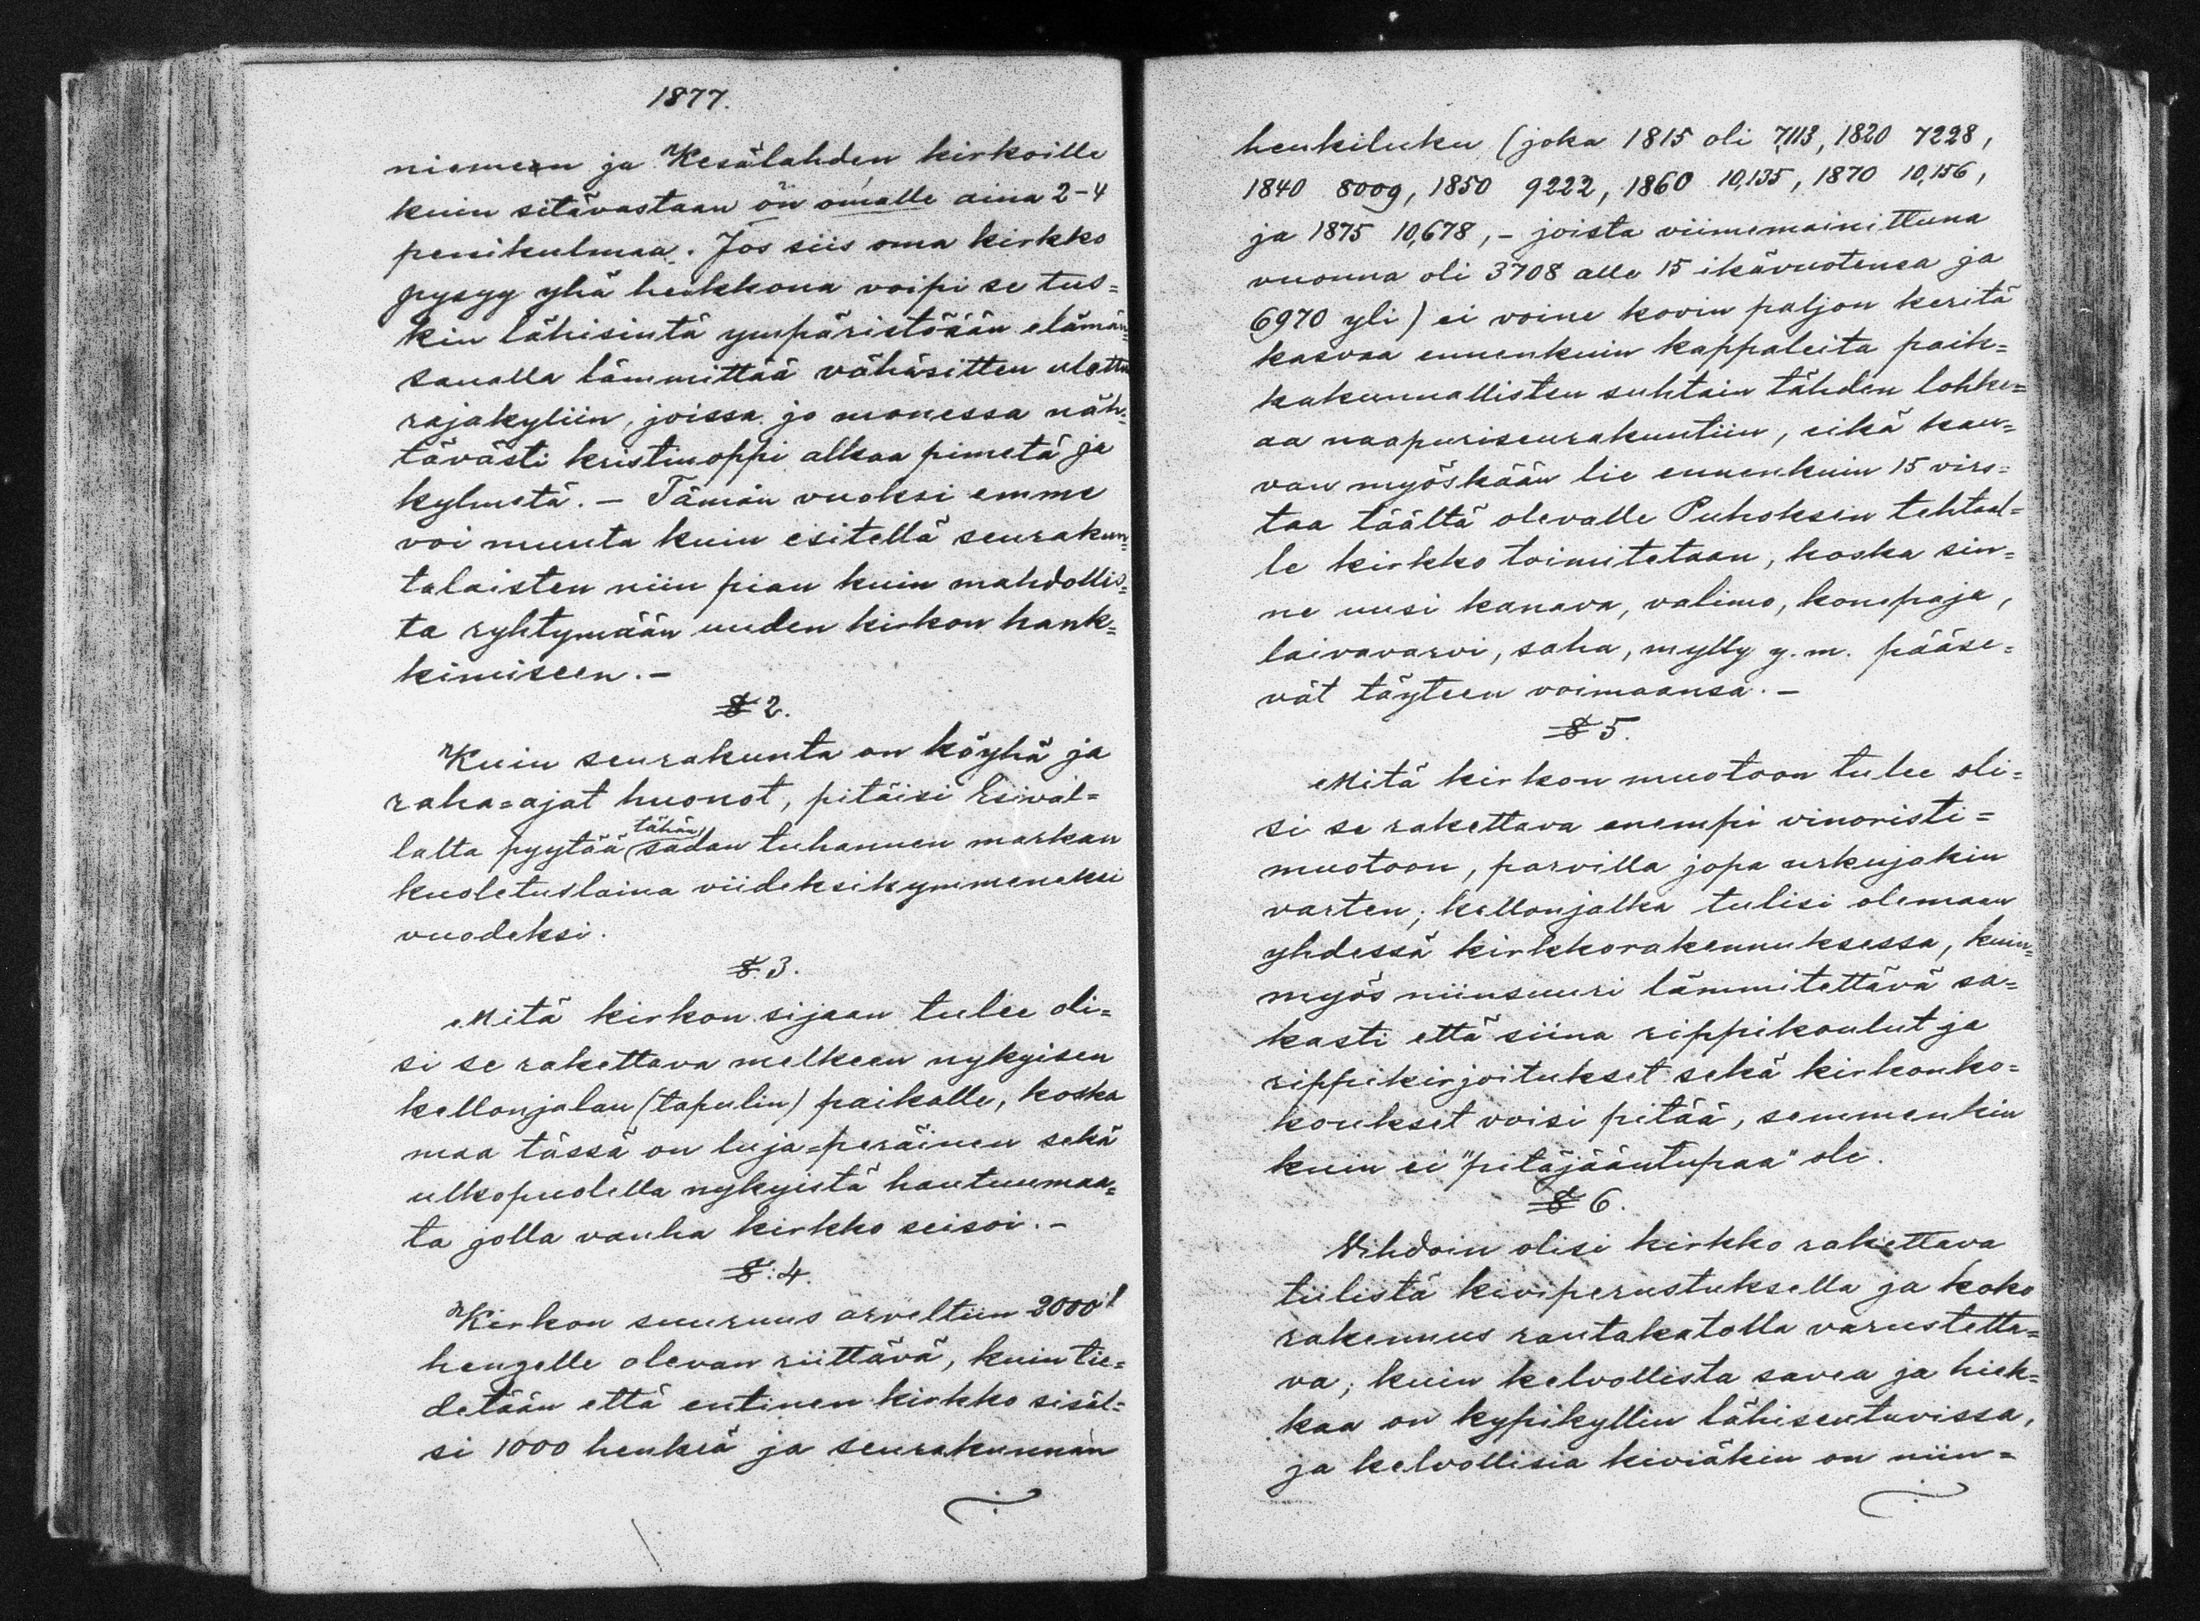 1877.
niemeen ja Kesälahden kirkoille
kuin sitävastaan on omalle aina 2-4
penikulmaa. Jos siis oma kirkko
pysyy yhä heikkona voipi se tus=
kin lähisintä ympäristöään elämän=
sanalla lämmittää vähäsitten ulottu
rajakyliin, joissa jo monessa näh=
tävästi kristinoppi alkaa pimetä ja
kylmetä. - Tämän vuoksi emme
voi muuta kuin esitellä seurakun=
talaisten niin pian kuin mahdollis=
ta ryhtymään uuden kirkon hank=
kimiseen. -
§ 2.
Kuin seurakunta on köyhä ja
raha=ajat huonot, pitäisi Esival=
tähän
lalta pyytää sadan tuhannen markan
kuoletuslaina viideksikymmeneksi
vuodeksi.
§. 3.
Mitä kirkon sijaan tulee oli=
si se rakettava melkeen nykyisen
kellonjalan (tapulin) paikalle, koska
maa tässä on luja=peräinen sekä
ulkopuolella nykyistä hautuumaa=
ta jolla vanha kirkko seisoi. -
§: 4.
Kirkon suuruus arveltiin 2000!
hengelle olevan riittävä, kuin tie=
detään että entinen kirkko sisäl=
si 1000 henkeä ja seurakunnan
henkiluku (joka 1815 oli 7,113, 1820 7228,
1840 8009, 1850 9222, 1860 10,135, 1870 10,156,
ja 1875 10,678, - joista viimemainittuna
vuonna oli 3708 alle 15 ikävuotensa ja
6970 yli) ei voine kovin paljon keritä
kasvaa ennenkuin kappaleita paik=
kakunnallisten suhtain tähden lohke=
aa naapuriseurakuntiin, eikä kau=
van myöskään lie ennenkuin 15 virs=
taa täältä olevalle Puhoksen tehtaal=
le kirkko toimitetaan, koska sin=
ne uusi kanava, valimo, konepaja,
laivavarvi, saha, mylly y.m. pääse=
vät täyteen voimaansa. -
§ 5.
Mitä kirkon muotoon tulee oli=
si se rakettava enempi vinoristi=
muotoon, parvilla jopa urkujakin
varten; kellonjalka tulisi olemaan
yhdessä kirkkorakennuksessa, kuin=
myös niinsuuri lämmitettävä sa=
kasti että siinä rippikoulut ja
rippikirjoitukset sekä kirkonko=
koukset voisi pitää, semmenkin
kuin ei "pitäjääntupaa" ole.
§ 6.
Vihdoin olisi kirkko rakettava
tiilistä kiviperustuksella ja koko
rakennus rautakatolla varustetta=
va; kuin kelvollista savea ja hiek=
kaa on kypikyllin lähiseutuvissa,
ja kelvollisia kiviäkin on niin=